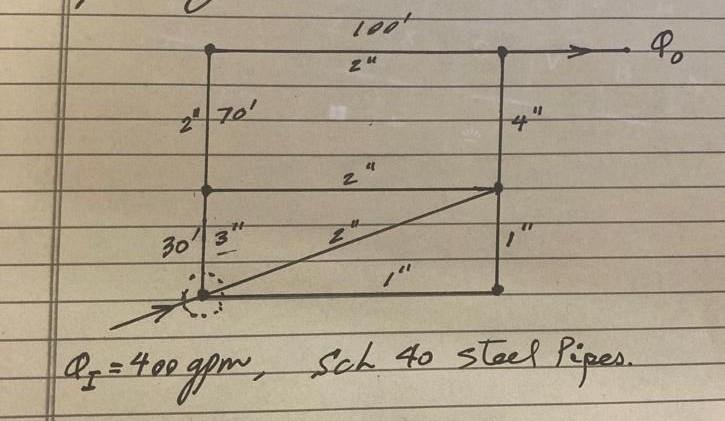 100'
2" Φ₀
2" 70' 4"
2"
30' 3" 2" 1"
1"
Φ_I = 400 gpm, Sch 40 Steel Pipes.